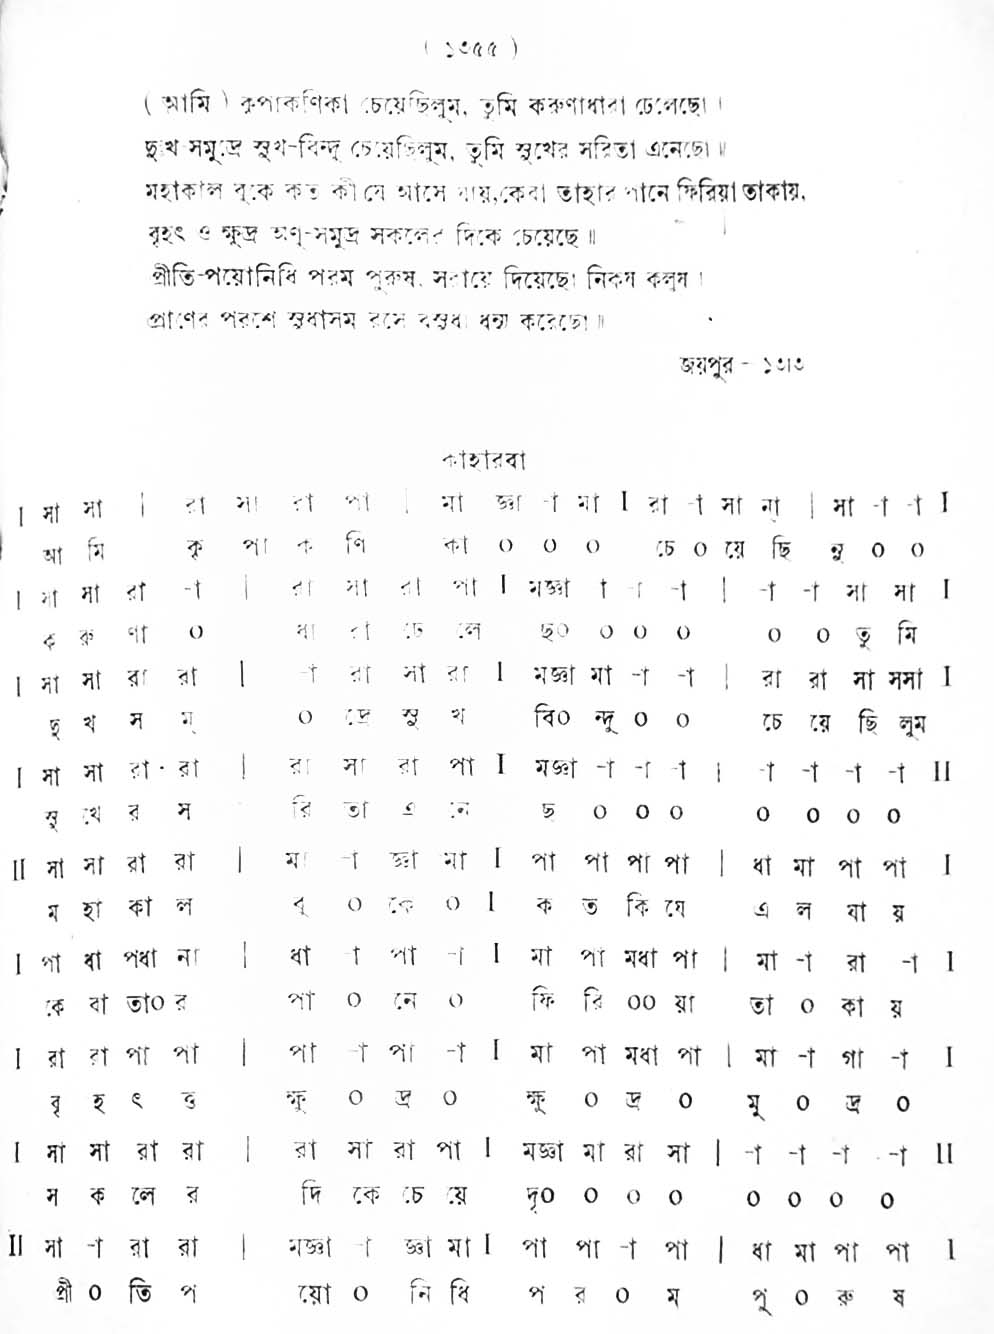 ( ১৩৫৫ )
( আমি ) কৃপাকণিকা চেয়েছিলুম, তুমি করুণাধারা ঢেলেছো ।
দুঃখ-সমুদ্রে সুখ-বিন্দু চেয়েছিলুম, তুমি সুখের সরিতা এনেছো ॥
মহাকাল বুকে কত কী যে আসে যায়, কেবা তাহার পানে ফিরিয়া তাকায়,
বৃহৎ ও ক্ষুদ্র অণু-সমুদ্র সকলের দিকে চেয়েছে ॥
প্রীতি-পয়োনিধি পরম পুরুষ, সরায়ে দিয়েছো নিকষ কলুষ ।
প্রাণের পরশে সুধাসম রসে বসুধা ধন্য করেছো ॥
জয়পুর - ১৩।৩
কাহারবা
I সা সা | রা সা রা পা | মা জ্ঞা -া মা I রা -া সা না্ | সা -া -া I
আ মি কৃ পা ক ণি কা ০ ০ ০ চে ০ য়ে ছি লু ০ ০
I সা সা রা -া | রা সা রা পা I মজ্ঞা া -া -া | -া -া সা সা I
ক রু ণা ০ ধা রা ঢে লে ছ০ ০ ০ ০ ০ ০ তু মি
I সা সা রা রা | -া রা সা রা I মজ্ঞা মা -া -া | রা রা সা সসা I
দু খ স মু ০ দ্রে সু খ বি০ ন্দু ০ ০ চে য়ে ছি লুম
I সা সা রা · রা | রা সা রা পা I মজ্ঞা -া -া -া | -া -া -া -া II
সু খে র স রি তা এ নে ছ ০ ০ ০ ০ ০ ০ ০
II সা সা রা রা | মা -া জ্ঞা মা I পা পা পা পা | ধা মা পা পা I
ম হা কা ল বু ০ কে ০ I ক ত কি যে এ ল যা য়
I পা ধা পধা না | ধা -া পা -া I মা পা মধা পা | মা -া রা -া I
কে বা তা০ র পা ০ নে ০ ফি রি ০০ য়া তা ০ কা য়
I রা রা পা পা | পা -া পা -া I মা পা মধা পা | মা -া গা -া I
বৃ হ ৎ ও ক্ষু ০ দ্র ০ ক্ষু ০ দ্র ০ মু ০ দ্র ০
I সা সা রা রা | রা সা রা পা I মজ্ঞা মা রা সা | -া -া -া -া II
স ক লে র দি কে চে য়ে দৃ০ ০ ০ ০ ০ ০ ০ ০
II সা -া রা রা | মজ্ঞা -া জ্ঞা মা I পা পা -া পা | ধা মা পা পা I
প্রী ০ তি প য়ো ০ নি ধি প র ০ ম পু ০ রু ষ